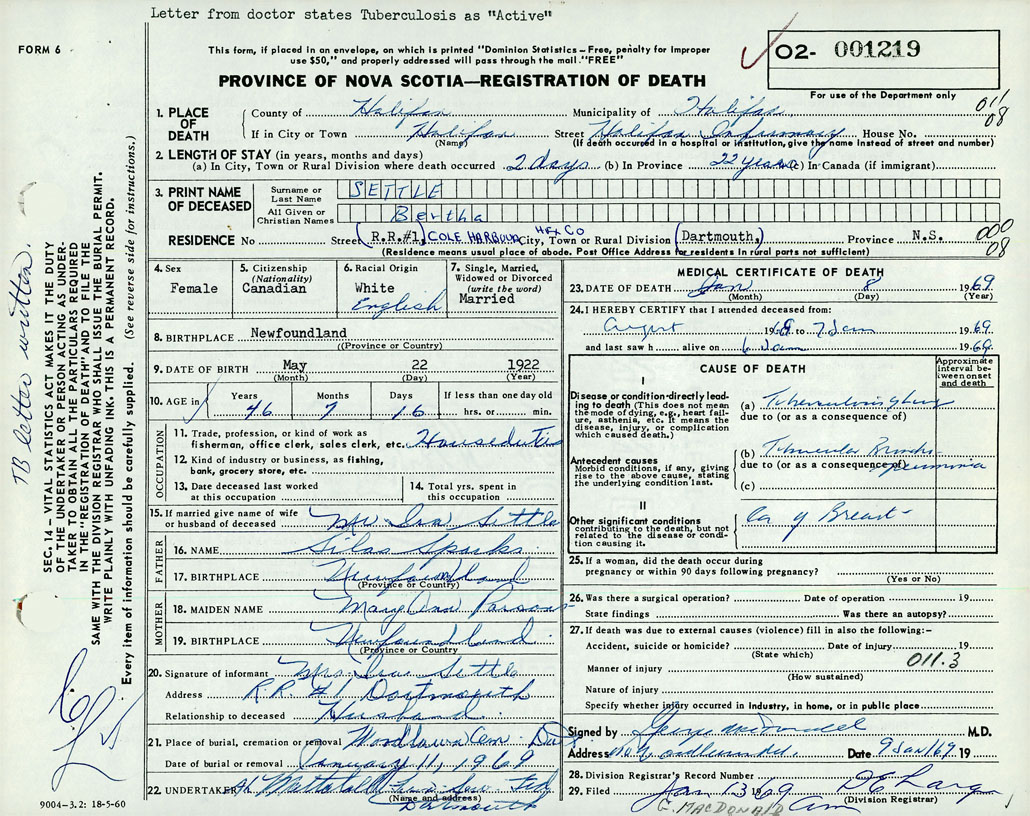 Letter from doctor states Tuberculosis as "Active"
FORM 6
This form, if placed in an envelope, on which is printed "Dominion Statistics – Free, penalty for improper
use $50," and properly addressed will pass through the mail "FREE"
O2- 001219
PROVINCE OF NOVA SCOTIA—REGISTRATION OF DEATH
For use of the Department only
011
08
1. PLACE OF DEATH
County of Halifax Municipality of Halifax
If in City or Town Halifax Street Halifax Infirmary House No.
(Name) (If death occurred in a hospital or institution, give the name instead of street and number)
2. LENGTH OF STAY (in years, months and days)
(a) In City, Town or Rural Division where death occurred 2 days (b) In Province 22 years (c) In Canada (if immigrant)
3. PRINT NAME OF DECEASED
Surname or Last Name SETTLE
All Given or Christian Names Bertha
RESIDENCE No Street R.R.#1, COLE HARBOUR HFX CO City, Town or Rural Division Dartmouth, Province N.S.
000
08
(Residence means usual place of abode. Post Office Address for residents in rural parts not sufficient)
4. Sex
Female
5. Citizenship
(Nationality)
Canadian
6. Racial Origin
White
English
7. Single, Married, Widowed or Divorced
(write the word)
Married
8. BIRTHPLACE Newfoundland
(Province or Country)
9. DATE OF BIRTH May 22 1922
(Month) (Day) (Year)
10. AGE in Years Months Days If less than one day old
46 7 16 hrs. or min.
OCCUPATION
11. Trade, profession, or kind of work as
fisherman, office clerk, sales clerk, etc. Houseduties
12. Kind of industry or business, as fishing,
bank, grocery store, etc.
13. Date deceased last worked
at this occupation
14. Total yrs. spent in
this occupation
15. If married give name of wife
or husband of deceased Mr Ira Settle
FATHER
16. NAME Silas Sparks
17. BIRTHPLACE Newfoundland
(Province or Country)
MOTHER
18. MAIDEN NAME Mary Ann Parsons
19. BIRTHPLACE Newfoundland
(Province or Country)
20. Signature of informant Mrs Ira Settle
Address R.R #1 Dartmouth
Relationship to deceased Husband
21. Place of burial, cremation or removal Woodlawn Cem. Dart
Date of burial or removal January 11, 1969
22. UNDERTAKER
(Name and address)
Dartmouth
MEDICAL CERTIFICATE OF DEATH
23. DATE OF DEATH Jan 8 1969
(Month) (Day) (Year)
24. I HEREBY CERTIFY that I attended deceased from:
August 1968 to 7 Jan 1969
and last saw h alive on 6 Jan 1969
CAUSE OF DEATH
Approximate interval between onset and death
I
Disease or condition directly leading to death (This does not mean the mode of dying, e.g., heart failure, asthenia, etc. It means the disease, injury, or complication which caused death.)
(a) Tuberculosis lung
due to (or as a consequence of)
Antecedent causes
Morbid conditions, if any, giving rise to the above cause, stating the underlying condition last.
(b) Tubercular Broncho
due to (or as a consequence of) pneumonia
(c)
II
Other significant conditions
contributing to the death, but not related to the disease or condition causing it.
Ca of Breast
25. If a woman, did the death occur during
pregnancy or within 90 days following pregnancy?
(Yes or No)
26. Was there a surgical operation? Date of operation 19
State findings Was there an autopsy?
27. If death was due to external causes (violence) fill in also the following:–
Accident, suicide or homicide? Date of injury 19
(State which)
011.3
Manner of injury
(How sustained)
Nature of injury
Specify whether injury occurred in Industry, in home, or in public place
Signed by M.D.
Address Date 9 Jan/69 19
28. Division Registrar's Record Number
29. Filed Jan 13 1969
(Division Registrar)
G. MACDONALD
SEC. 14 – VITAL STATISTICS ACT MAKES IT THE DUTY
OF THE UNDERTAKER OR PERSON ACTING AS UNDERTAKER TO OBTAIN ALL THE PARTICULARS REQUIRED
IN THE "REGISTRATION OF DEATH" AND TO FILE THE
SAME WITH THE DIVISION REGISTRAR WHO SHALL ISSUE THE BURIAL PERMIT.
WRITE PLAINLY WITH UNFADING INK. THIS IS A PERMANENT RECORD.
Every item of information should be carefully supplied. (See reverse side for instructions.)
TB letter written.
9004-3.2: 18-5-60